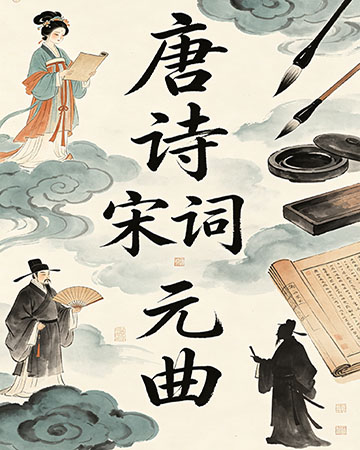 唐
诗
宋词
元
曲